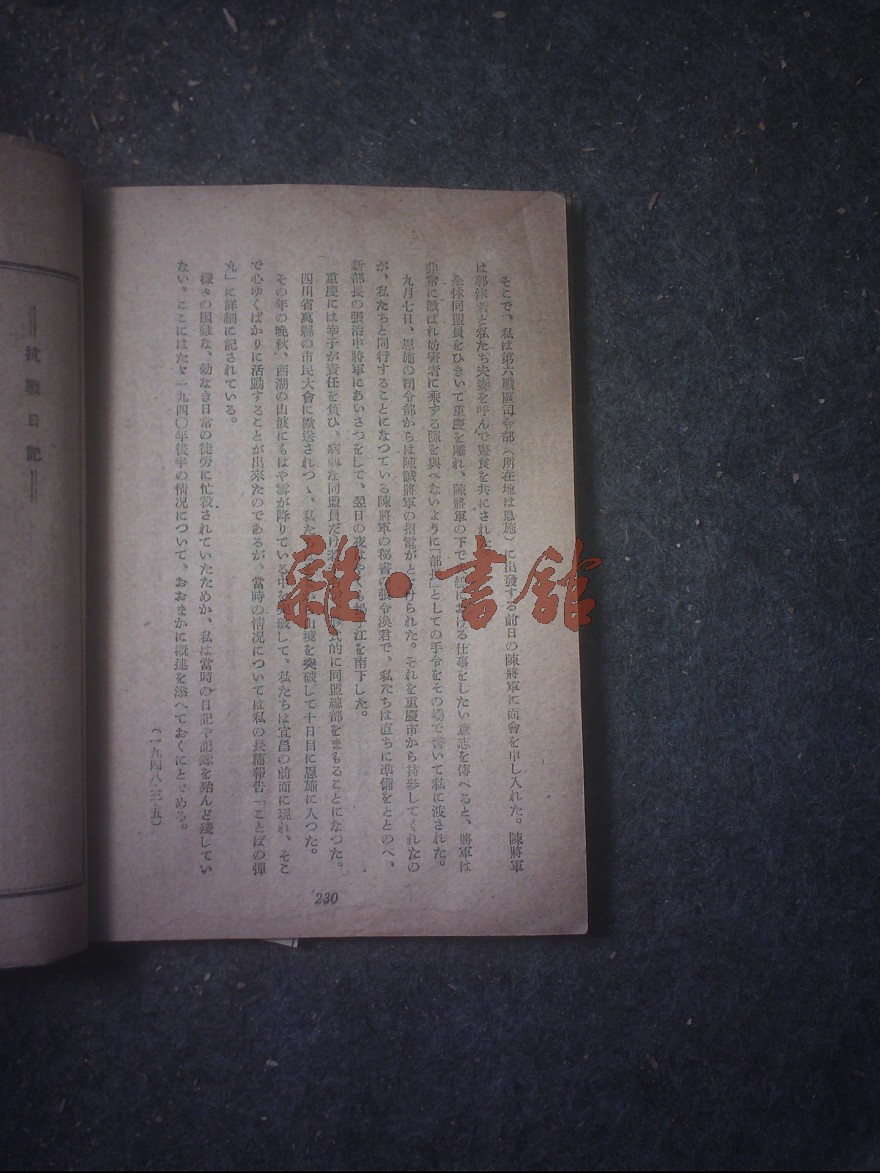 そこで、私は第六戰區司令部（所在地は恩施）に出發する前日の陳將軍に面會を申し入れた。陳將軍
は郭沫若と私たち夫妻を呼んで晝食を共にされ
全休同盟員をひきいて重慶を離れ、陳將軍の下で 線における仕事をしたい意志を傳へると、將軍は
非常に歡ばれ妨害者に乘ずる隙を與へないように「部長」としての手令をその場で書いて私に渡された。
九月七日、恩施の司令部からは陳誠將軍の招電がとゞけられた。それを重慶市から持參してくれたの
が、私たちと同行することになつている陳將軍の秘書の張令澳君で、私たちは直ちに準備をととのへ、
新部長の張治中將軍にあいさつをして、翌日の夜 揚子江を南下した。
重慶には幸子が責任を負ひ、病弱な同盟員だけ 形式的に同盟總部をまもることになつた。
四川省萬縣の市民大會に歡送されつゝ、私た 山境を突破して十日目に恩施に入つた。
その年の晩秋、西湖の山波にもはや雪が降りている中を 破して、私たちは宜昌の前面に現れ、そこ
で心ゆくばかりに活動することが出來たのであるが、當時の情況については私の長篇報告「ことばの彈
丸」に詳細に記されている。
樣々の困難な、効なき日常の徒勞に忙殺されていたためか、私は當時の日記や記錄を殆んど殘してい
ない。ここにはたゞ一九四〇年後半の情況について、おおまかに概述を添へておくにとゞめる。
（一九四八・三・五）
230
抗戰日記
雜・書館